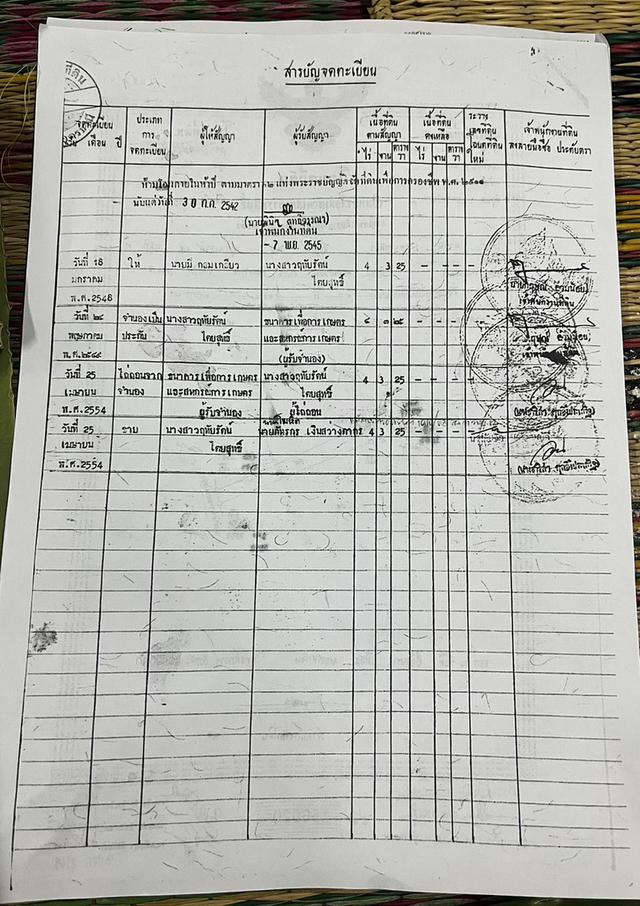 สารบัญจดทะเบียน
จดทะเบียน วัน เดือน ปี
ประเภทการจดทะเบียน
ผู้ให้สัญญา
ผู้รับสัญญา
เนื้อที่ดินตามสัญญา
ไร่ งาน ตารางวา
เนื้อที่ดินคงเหลือ
ไร่ งาน ตารางวา
ระวาง เลขที่ดิน โฉนดที่ดินใหม่
เจ้าพนักงานที่ดิน ลงลายมือชื่อ ประทับตรา
ห้ามโอนภายในห้าปี ตามมาตรา ๑๒ แห่งพระราชบัญญัติจัดที่ดินเพื่อการครองชีพ พ.ศ. ๒๕๑๑
นับแต่วันที่ 30 ก.ค. 2542
เจ้าพนักงานที่ดิน
- 7 พ.ย. 2545
วันที่ 16 ให้ นายมี นางสาวฤทัยรัตน์ 4 3 25 - - - -
มกราคม โตยสุทธิ์
พ.ศ.2546
เจ้าพนักงานที่ดิน
วันที่ จำนองเป็น นางสาวฤทัยรัตน์ ธนาคารเพื่อการเกษตร ๔ ๓ ๒๕ - - - -
พฤษภาคม ประกัน โตยสุทธิ์ และสหกรณ์การเกษตร
พ.ศ. (ผู้รับจำนอง)
วันที่ 25 ไถ่ถอนจาก ธนาคารเพื่อการเกษตร นางสาวฤทัยรัตน์ 4 3 25 - - - -
เมษายน จำนอง และสหกรณ์การเกษตร โตยสุทธิ์
พ.ศ.2554 ผู้รับจำนอง ผู้ไถ่ถอน
วันที่ 25 ขาย นางสาวฤทัยรัตน์ นายภัทรกร เงินสว่าง 4 3 25 - - - -
เมษายน โตยสุทธิ์
พ.ศ.2554